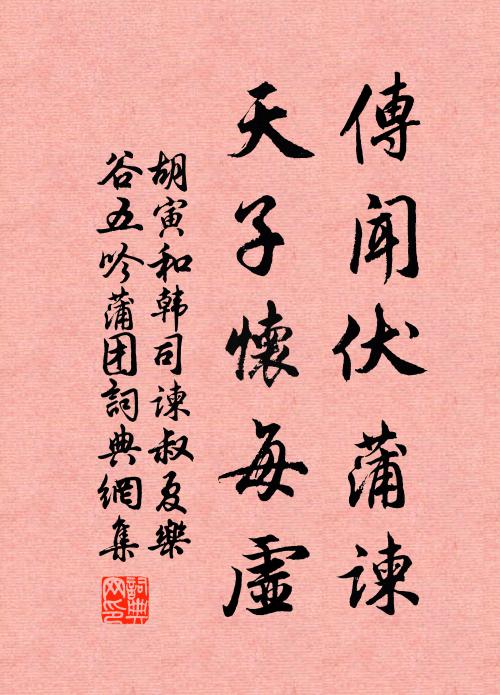 傳聞伏蒲諫
天子懷每虛
胡寅和韩司谏叔夏樂
谷五吟蒲团詞典網集
詞典网印